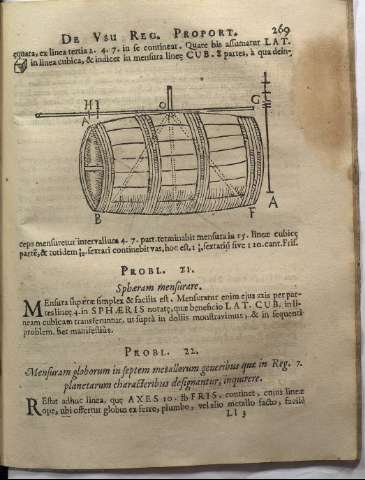 DE VSU REG. PROPORT. 269
equata, ex linea tertia 2. 4. 7. in se contineat. Quare bis assumatur LAT.
in linea cubica, & indicet in mensura lineę CUB. 8 partes, à qua dein-
H I O G
A
A
B F
ceps mensuretur intervallum 4. 7. part. terminabit mensura in 15. lineæ cubicę
parte, & totidem sextari continebit vas, hoc est, 1 sextarij sive 120. cant. Fris.
PROBL. 21.
Sphæram mensurare.
Mensura supæræ simplex & facilis est. Mensuratur enim ejus axis per par-
tes lineę 4. in SPHÆRIS notatę, quæ beneficio LAT. CUB. in li-
neam cubicam transferuntur, ut suprà in doliis monstravimus, & in sequenti
problem. fiet manifestius.
PROBL. 22.
Mensuram globorum in septem metallorum generibus que in Reg. 7.
planetarum characteribus designantur, inquirere.
REstat adhuc linea, quę AXES 10. lb FRIS. continet, cujus lineæ
ope, ubi offertur globus ex ferro, plumbo, vel alio metallo facto, facilè
Ll 3